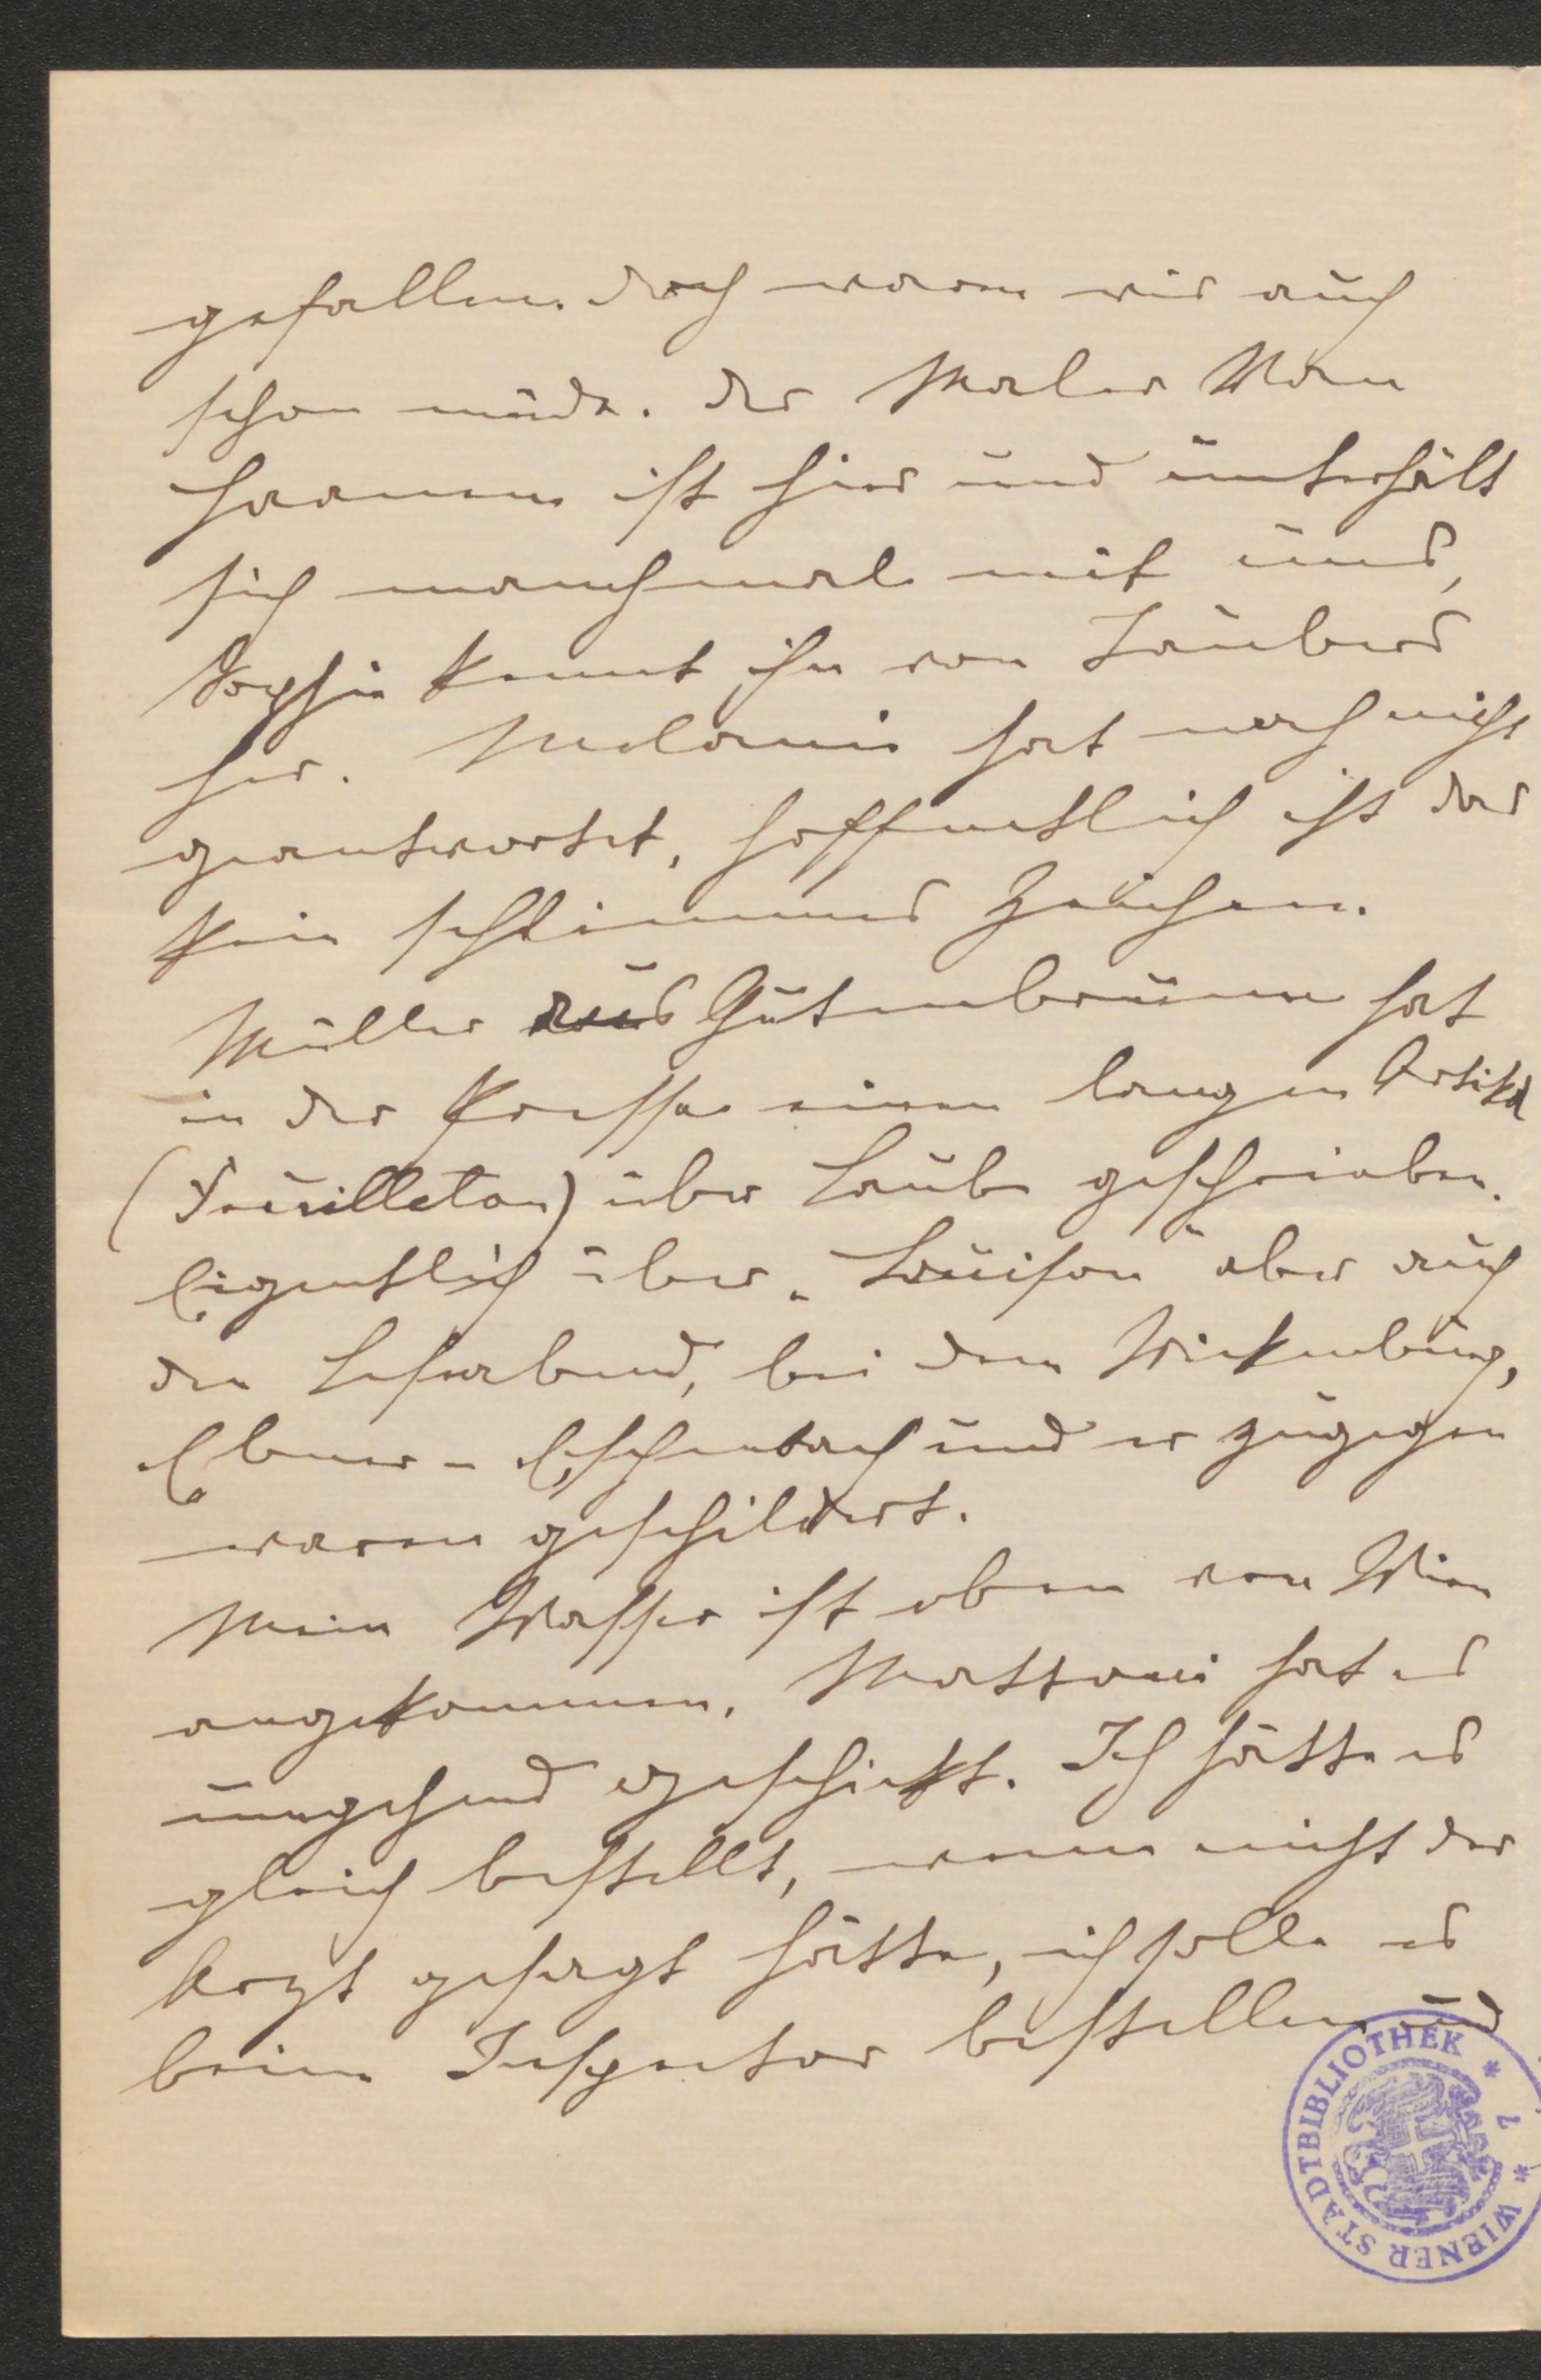 gefallen. doch waren wir auch
schon müde. Der Maler Van
Haanen ist hier und unterhält
sich manchmal mit uns,
Sophie kennt ihn von Taubers
her. Melanie hat noch nicht
geantwortet, hoffentlich ist das
kein schlimmes Zeichen.
Müller aus Gutenbrunn hat
in der Presse einen langen Artikel
(Feuilleton) über Laube geschrieben.
Eigentlich über „Louison" aber auch
den Leseabend, bei dem Wickenburg,
Ebner-Eschenbach und er zugegen
waren geschildert.
Mein Wasser ist eben von Wien
angekommen. Mattoni hat es
umgehend geschickt. Ich hätte es
gleich bestellt, wenn nicht der
Arzt gesagt hätte, ich solle es
beim Inspector bestellen und
WIENER STADTBIBLIOTHEK